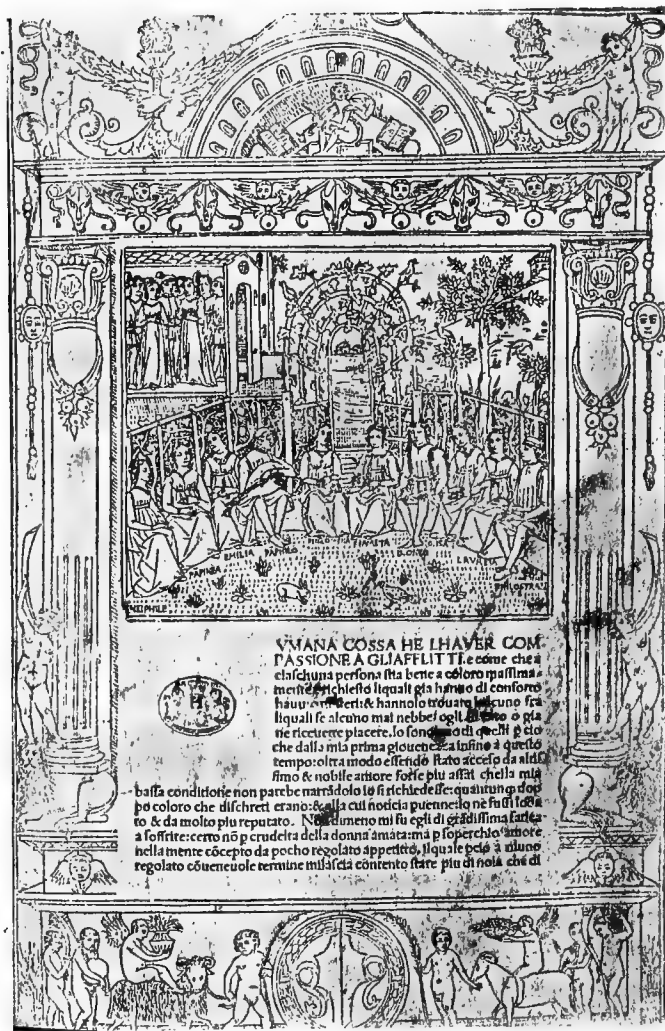 NEIPHILE
PAPINEA
EMILIA
PAPHILO
FIAMETA
D. ONEO
LAVRETA
PHILOSTRA
VMANA COSSA HE LHAVER COM
PASSIONE A GLIAFFLITTI. e come che a
ciaschuna persona stia bene a coloro massima-
mente richiesto liquali gia hanno di conforto
hauuto & hannolo trouato fra
liquali se alcuno mai nebbe egli o gia
ne riceuette piacere. Io sono uno di quelli p cio
che dalla mia prima giouenezza insino a questo
tempo: oltra modo essendo stato acceso da altis
simo & nobile amore forse piu assai chella mia
bassa conditione non parebe narrādolo io si richiedesse: quantunqp dop
po coloro che dischreti erano: & alla cui noticia puenneilo ne fusi loda
to & da molto piu reputato. Nondimeno mi fu egli di grādissima faticha
a soffrire: certo nō p crudelta della donna amata: ma p soperchio amore
nella mente cōcepto da pocho regolato appetito, ilquale pcio a niuno
regolato cōueneuole termine milascia contento stare piu di noia che di